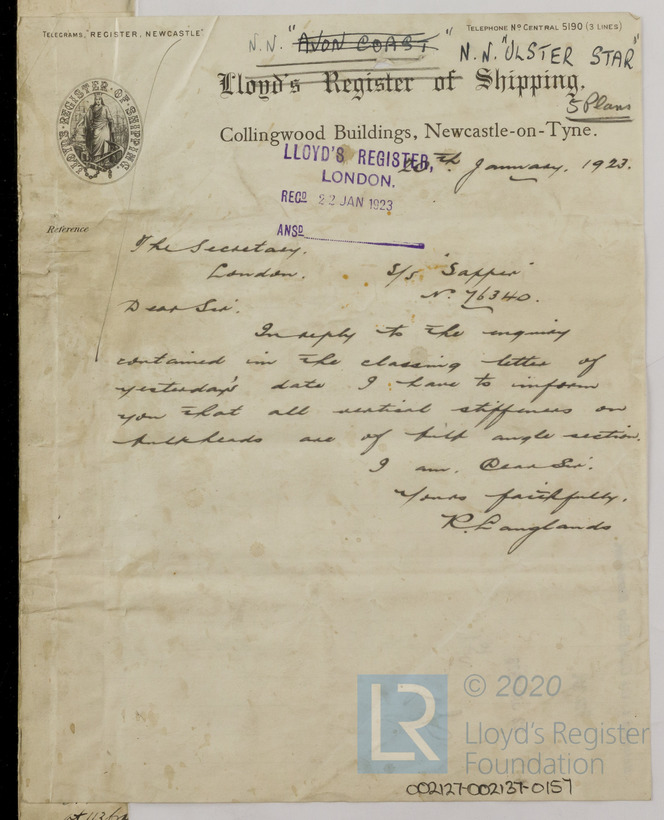 TELEGRAMS, "REGISTER, NEWCASTLE"
TELEPHONE Nº CENTRAL 5190 (3 LINES)
N.N. "AVON COAST"
N.N. "ULSTER STAR"
Lloyd's Register of Shipping,
5 Plans
LLOYD'S REGISTER OF SHIPPING.
Collingwood Buildings, Newcastle-on-Tyne.
th January. 1923.
LLOYD'S REGISTER,
LONDON.
RECD 22 JAN 1923
ANSD
Reference
The Secretary.
London.
S/S "Sapper"
No. 76340.
Dear Sir.
In reply to the enquiry
contained in the classing letter of
yesterday's date I have to inform
you that all vertical stiffeners on
bulkheads are of bulb angle section.
I am. Dear Sir.
Yours faithfully.
R. Langlands
LR
© 2020
Lloyd's Register
Foundation
002127-002137-0157